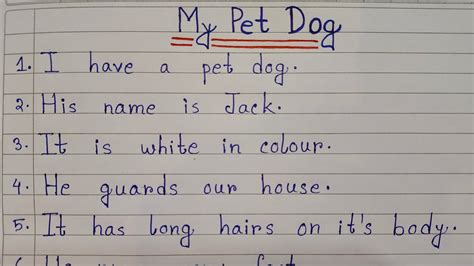 My Pet Dog
1. I have a pet dog.
2. His name is Jack.
3. It is white in colour.
4. He guards our house.
5. It has long hairs on it's body.